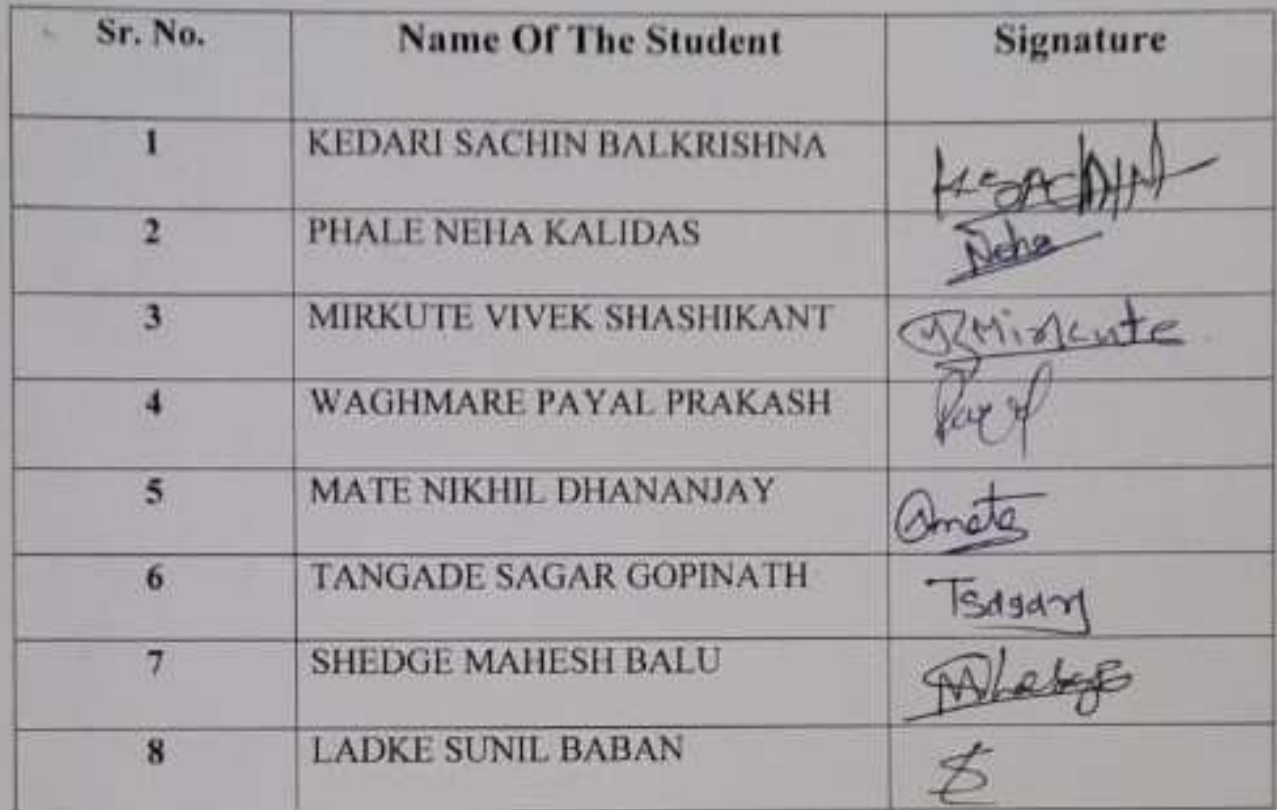 Sr. No. Name Of The Student Signature
1 KEDARI SACHIN BALKRISHNA KSACHIN
2 PHALE NEHA KALIDAS Neha
3 MIRKUTE VIVEK SHASHIKANT Mirkute
4 WAGHMARE PAYAL PRAKASH Payal
5 MATE NIKHIL DHANANJAY mate
6 TANGADE SAGAR GOPINATH Tsagar
7 SHEDGE MAHESH BALU
8 LADKE SUNIL BABAN